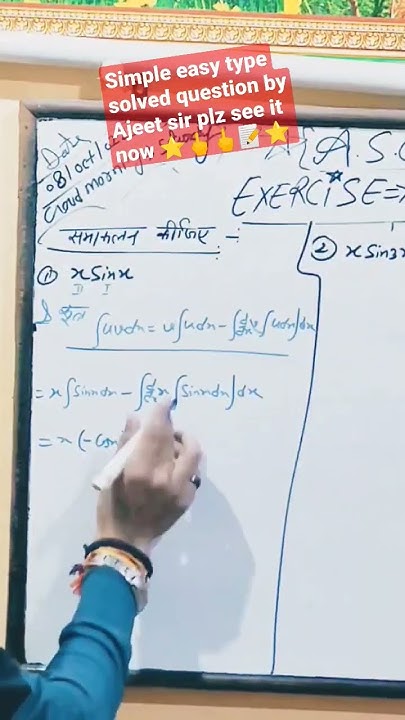 Simple easy type
solved question by
Ajeet sir plz see it
now ⭐👆👆📝⭐
Date
08/oct/
Good morning
A.S.
EXERCISE =
समाकलन कीजिए :-
① x Sinx
II I
② x Sin3x
∫uvdx = v∫udx - ∫(d/dx v ∫udx)dx
= x∫Sinxdx - ∫(d/dx x ∫Sinxdx)dx
= x(-Cosx